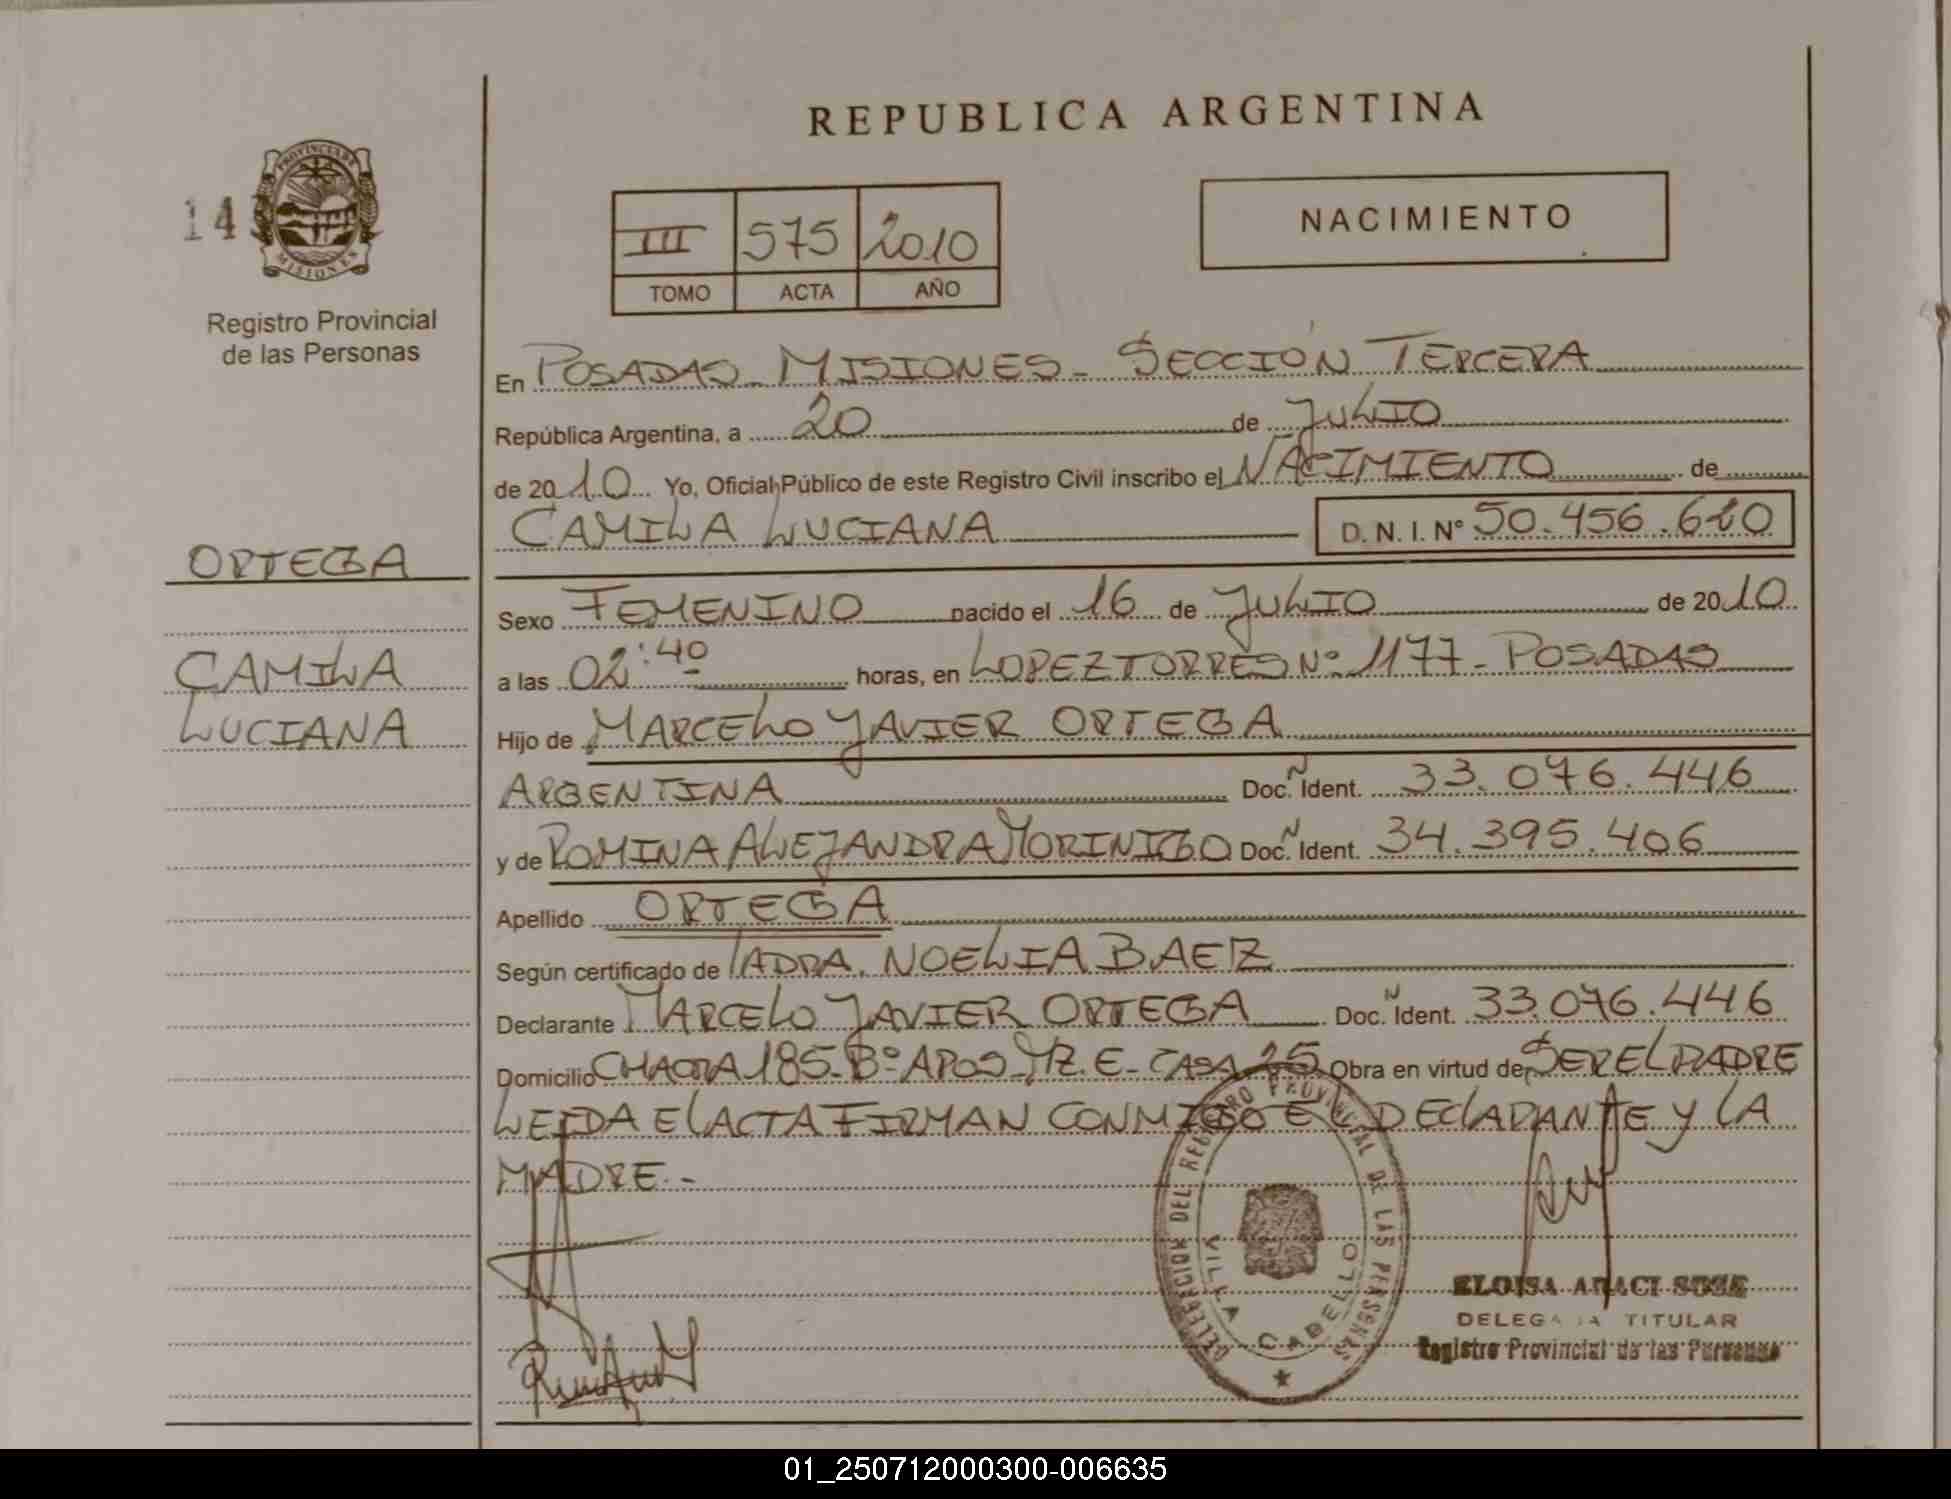 REPUBLICA ARGENTINA
14
PROVINCIA DE MISIONES
Registro Provincial
de las Personas
III 575 2010
TOMO ACTA AÑO
NACIMIENTO
En POSADAS - MISIONES - SECCIÓN TERCERA
República Argentina, a 20 de JULIO
de 2010 Yo, Oficial Público de este Registro Civil inscribo el NACIMIENTO de
CAMILA LUCIANA D. N. I. Nº 50.456.610
ORTEGA
CAMILA
LUCIANA
Sexo FEMENINO nacido el 16 de JULIO de 2010
a las 02:40 horas, en LOPEZ TORRES Nº 1177 - POSADAS
Hijo de MARCELO JAVIER ORTEGA
ARGENTINA Doc. Ñ Ident. 33.076.446
y de ROMINA ALEJANDRA MORINIGO Doc. Ñ Ident. 34.395.406
Apellido ORTEGA
Según certificado de NOELIA BAEZ
Declarante MARCELO JAVIER ORTEGA Doc. Ñ Ident. 33.076.446
Domicilio CHACRA 185 - Bº APOS - MZ. E - CASA 25 Obra en virtud de SER EL PADRE
LEIDA EL ACTA FIRMAN CONMIGO EL DECLARANTE Y LA
MADRE.-
DELEGACION DEL REGISTRO PROVINCIAL DE LAS PERSONAS
VILLA CABELLO
ELOISA ARACI
DELEGADA TITULAR
Registro Provincial de las Personas
01_250712000300-006635